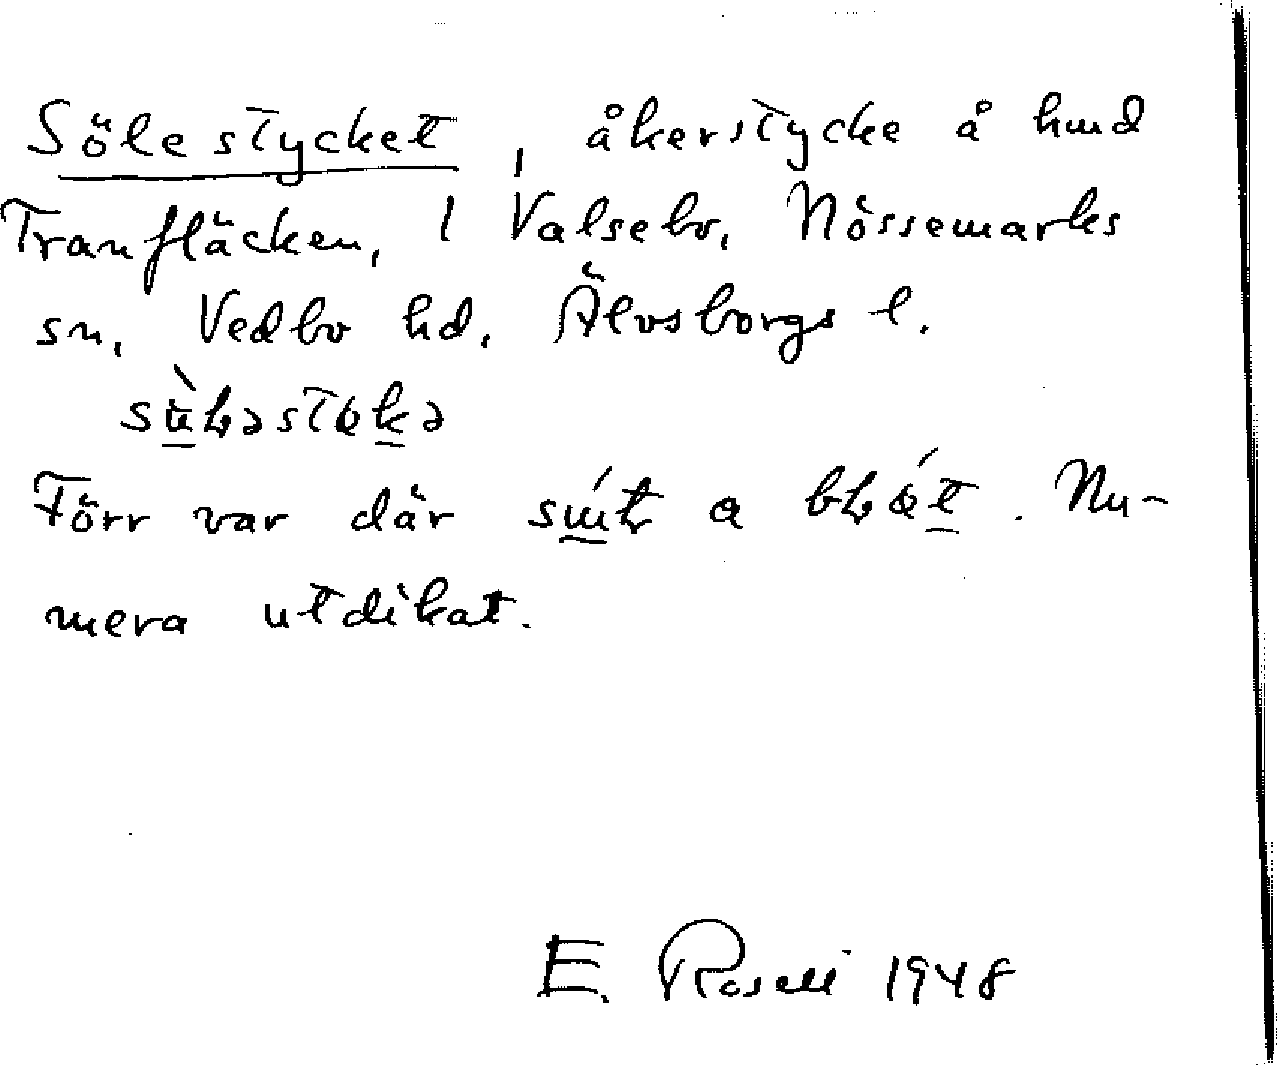 Sölestycket, åkerstycke å hmd
Tranfläcken, 1 Valsebo, Nössemarks
sn, Vedbo hd, Älvsborgs l.
Förr var där a. Nu-
mera utdikat.
E Rosell 1948